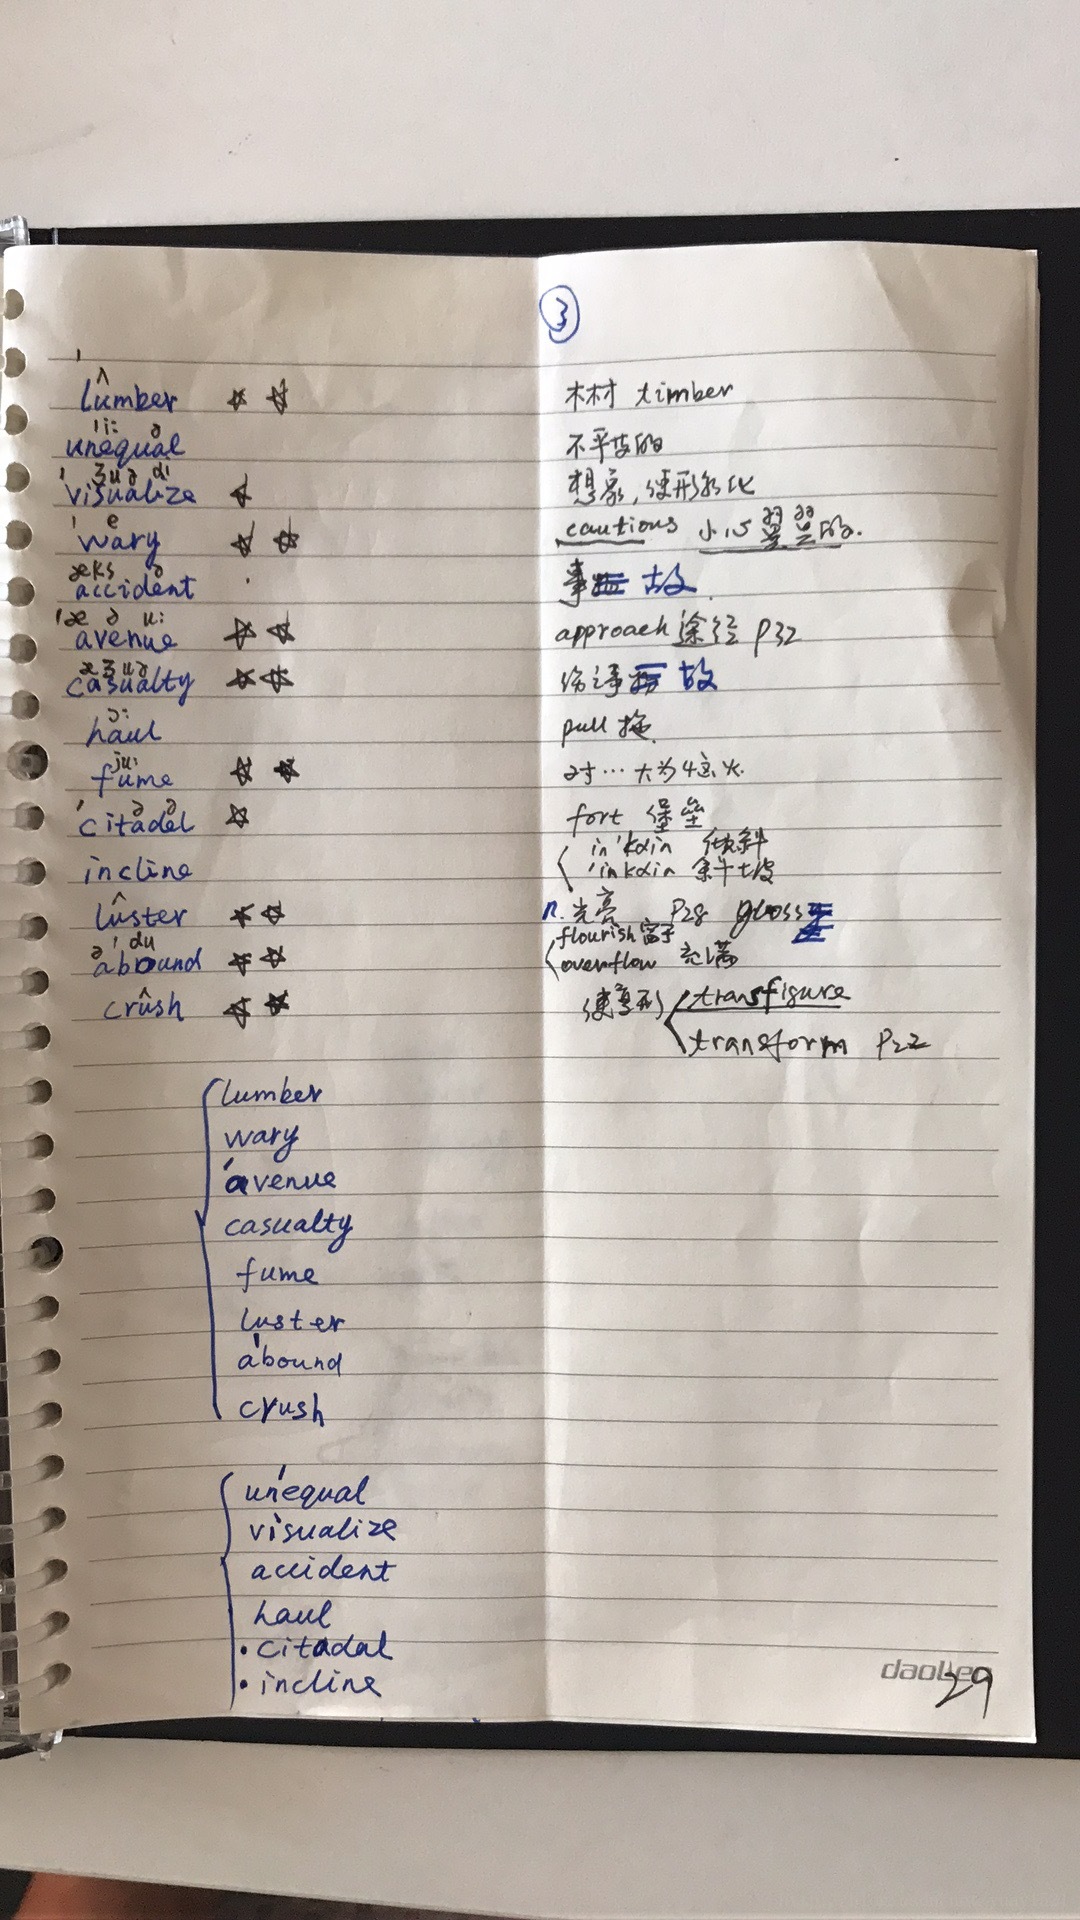 ③
lumber ☆ ☆ 木材 timber
unequal 不平等的
visualize ☆ 想象,使形象化
wary ☆ ☆ cautious 小心翼翼的.
accident 事故.
avenue ☆ ☆ approach 途径 P32
casualty ☆ ☆ 伤事故
haul pull 拖.
fume ☆ ☆ 对…大为恼火.
citadal ☆ fort 堡垒
incline in'kαin 倾斜
'inkαin 斜坡
luster ☆ ☆ n. 光亮 P28 gloss
abound ☆ ☆ flourish 富于
overflow 充满
crush ☆ ☆ 使变形 transfigure
transform P22
lumber
wary
avenue
casualty
fume
luster
abound
crush
unequal
visualize
accident
haul
citadal
incline
29